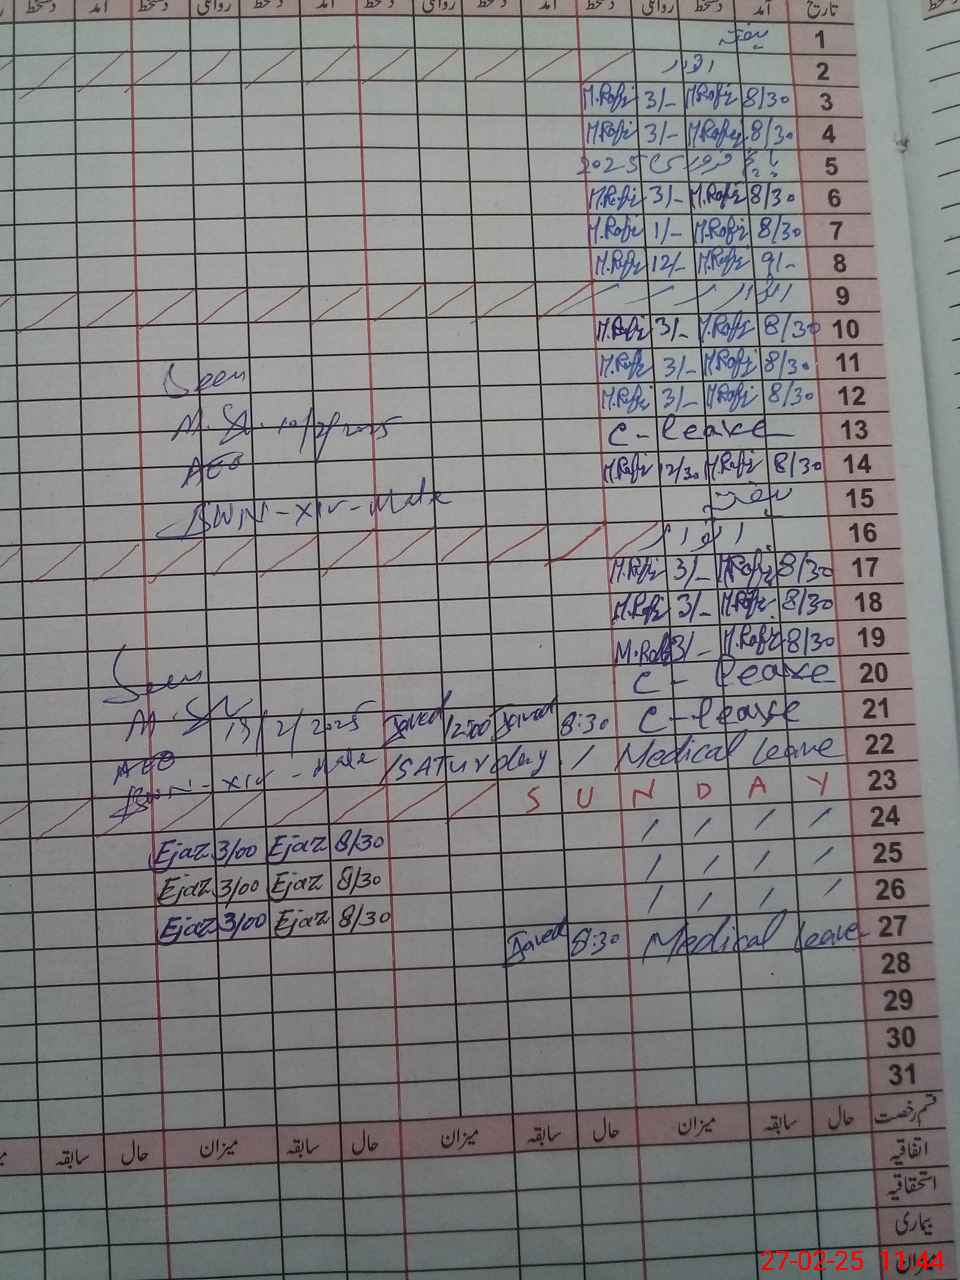 تاریخ آمد دستخط روانگی دستخط آمد دستخط روانگی دستخط آمد دستخط روانگی دستخط
1 ہفتہ
2 اتوار
3 8/30 M.Rafiz 3/- M.Rafiz
4 8/30 M.Rafiz 3/- M.Rafiz
5 2025
6 8/30 M.Rafiz 3/- M.Rafiz
7 8/30 M.Rafiz 1/- M.Rafiz
8 9/- M.Rafiz 12/- M.Rafiz
9 اتوار
10 8/30 M.Rafiz 3/- M.Rafiz
11 8/30 M.Rafiz 3/- M.Rafiz
Seen
12 8/30 M.Rafiz 3/- M.Rafiz
M. 10/2/2025
13 C-leave
AEO
14 8/30 M.Rafiz 12/30 M.Rafiz
BWN-XIV-Male
15 ہفتہ
16 اتوار
17 8/30 M.Rafiz 3/- M.Rafiz
18 8/30 M.Rafiz 3/- M.Rafiz
19 8/30 M.Rafiz 3/- M.Rafiz
Seen
20 C-leave
M. 19/2/2025
21 C-leave 8:30 Javed 12:00 Javed
AEO
22 Medical leave / SATurday
BWN-XIV-Male
23 SUNDAY
24 8/30 Ejaz 3/00 Ejaz
25 8/30 Ejaz 3/00 Ejaz
26 8/30 Ejaz 3/00 Ejaz
27 Medical leave 8:30 Javed
28
29
30
31
قسم رخصت حال سابقہ میزان حال سابقہ میزان حال سابقہ میزان حال سابقہ
اتفاقیہ
استحقاقیہ
بیماری
میزان
27-02-25 11:44